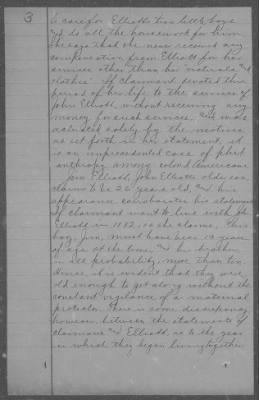 3
to care for Elliotts two little boys
and do all the housework for him.
She says that she never received any
compensation from Elliott for her
services other than her "victuals and
clothes". If claimant devoted this
period of her life to the service of
John Elliott, without receiving any
money for such services, and was
actuated solely by the motives
as set forth in her statement, it
is an unprecedented case of phil-
anthropy among colored Americans.
Jim Elliott, John Elliotts older son,
claims to be 26 years old, and his
appearance corroborates his statement.
If claimant went to live with the
Elliotts in 1882, as she claims, this
boy, Jim, must have been years
of age at the time, and his brother,
in all probability, more than ten
Hence, it is evident that they were
old enough to get along without the
constant vigilance of a maternal
protector. There is some discrepancy
however between the statements of
claimant and Elliott, as to the year
in which they began living together